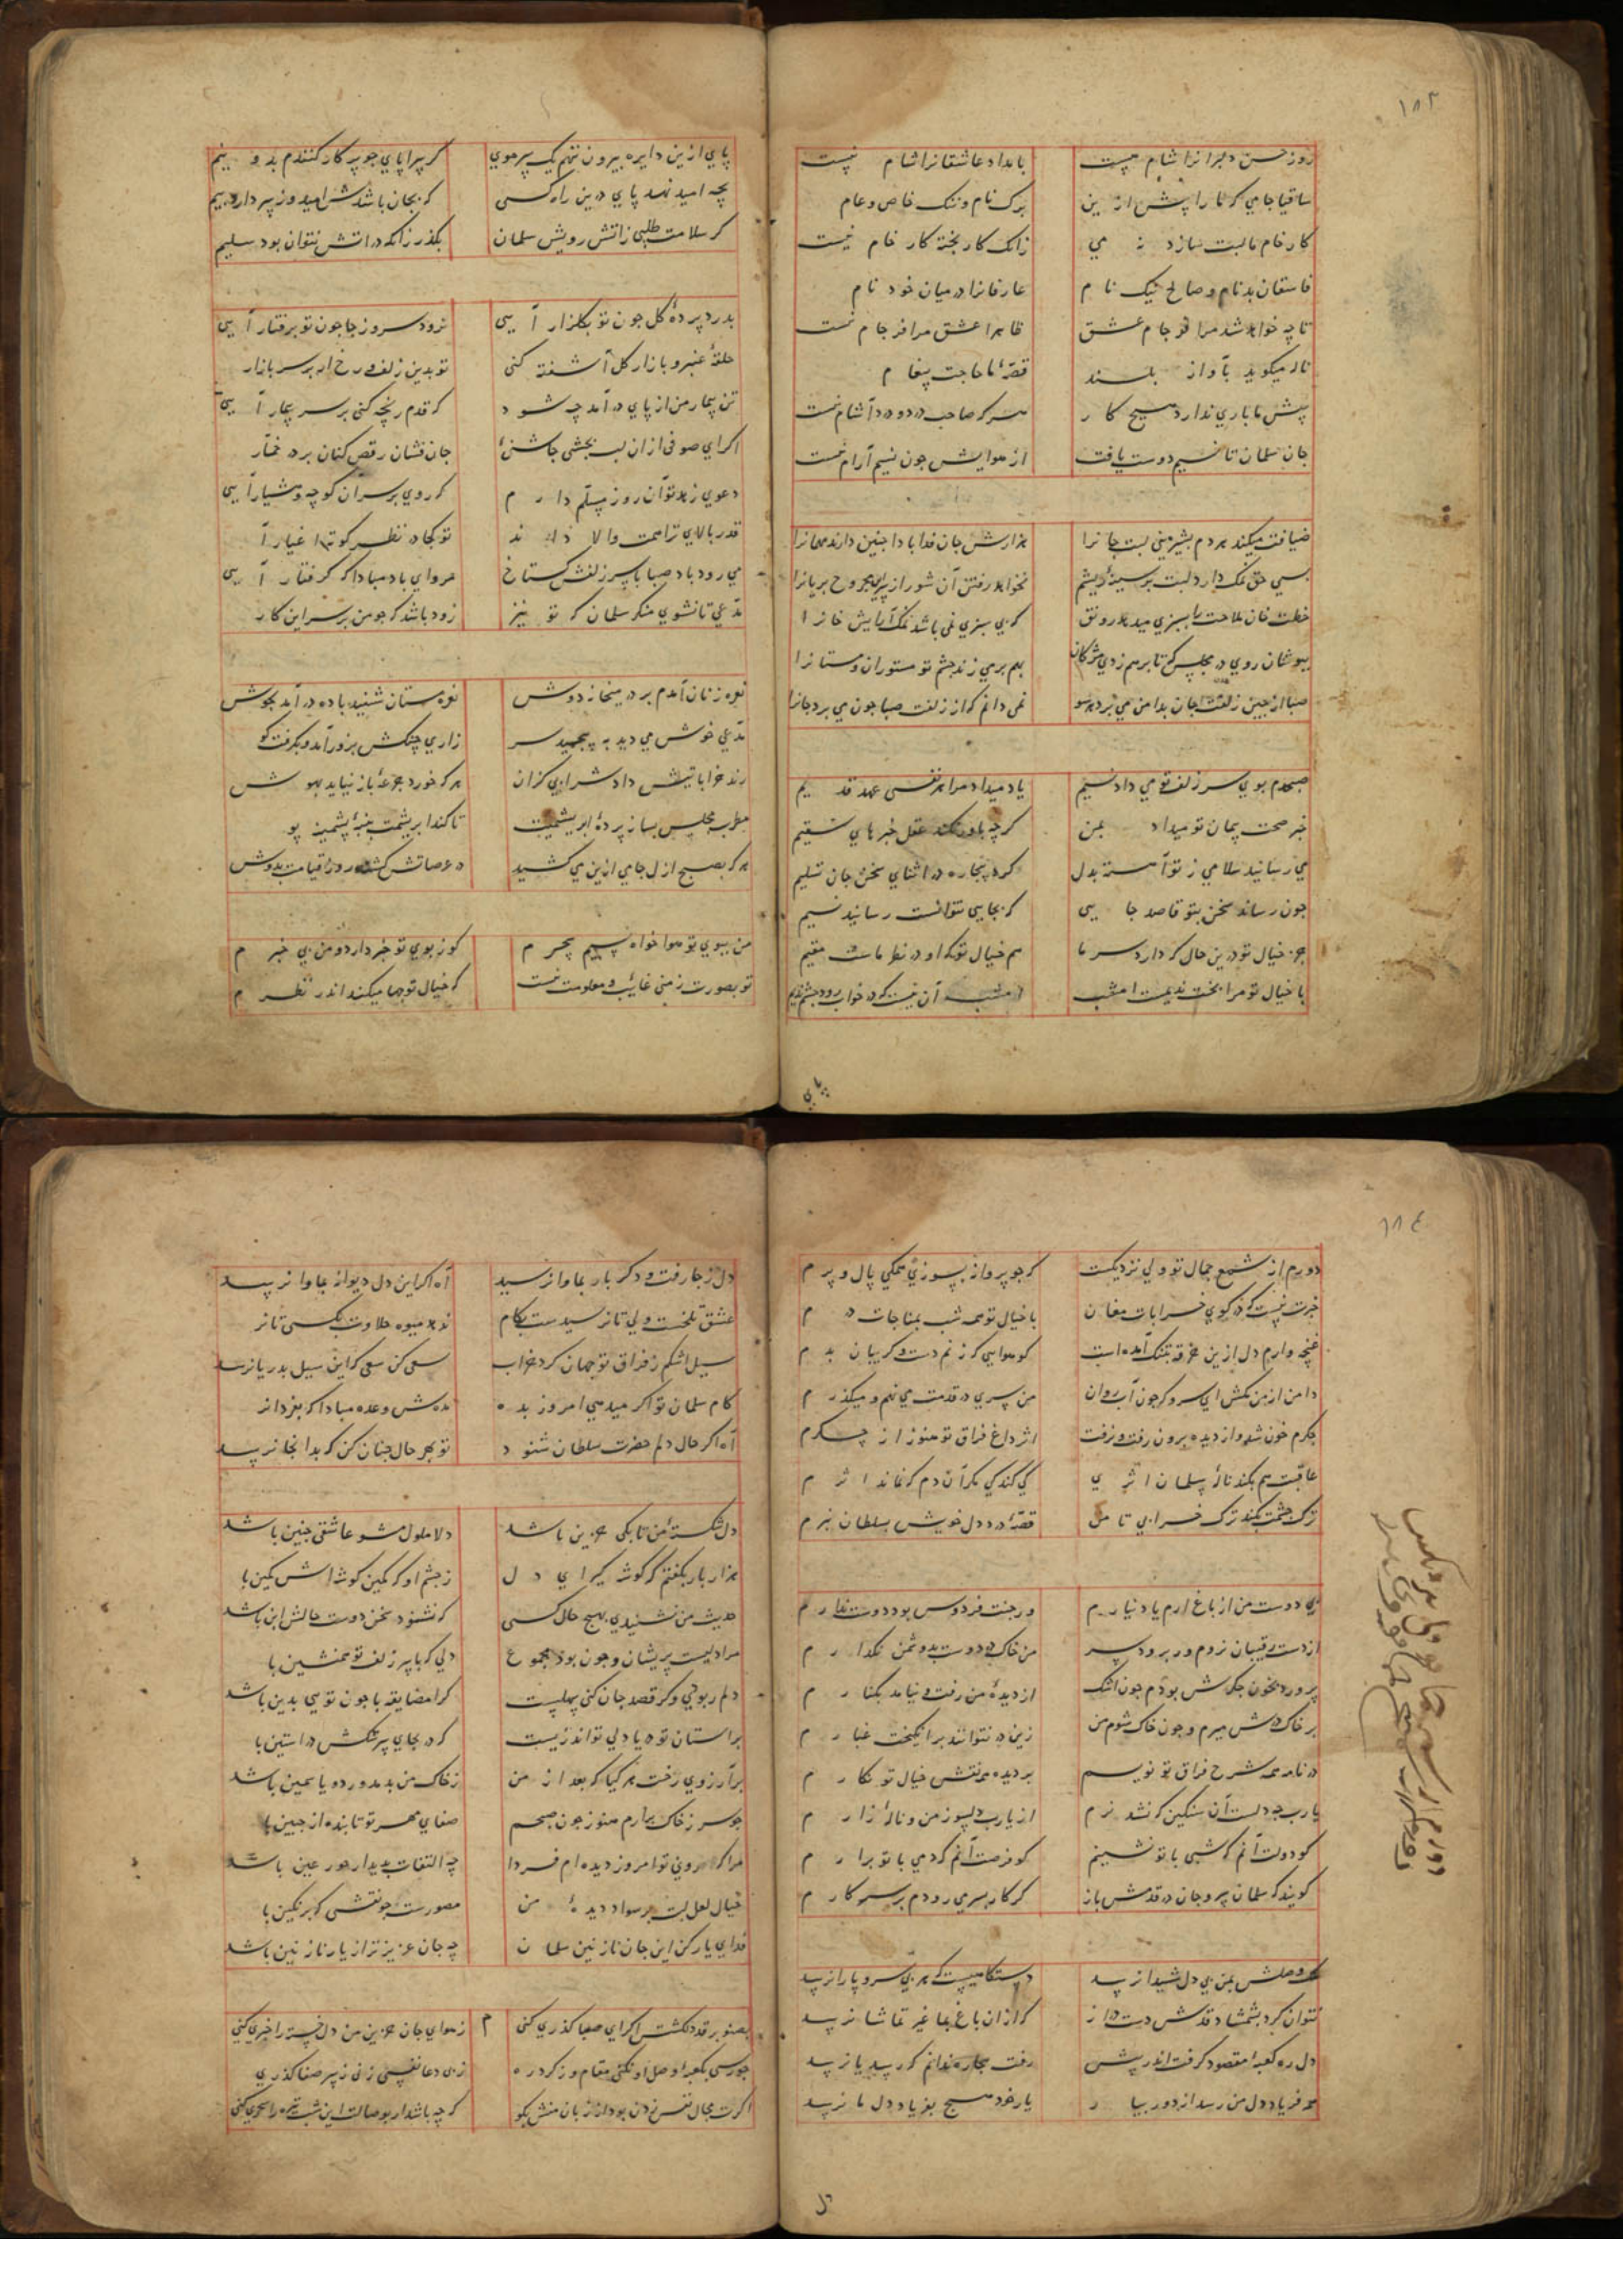 ١٨٣
روز حسن دلبرانرا شام نیست بامداد عاشقانرا شام نیست
ساقیا جامی که ما را پیش ازین برک نام و ننک خاص و عام
کار خام ماست سازد می زانک کار پخته کار خام نیست
فاسقان بدنام و صالح نیک نام عارفانرا در میان خود نام
تا چه خواهد شد مرا در جام عشق ظاهرا عشق مرا فرجام نیست
ناله میکوید بآواز بلند قصهٔ ما حاجت پیغام
پیش ما باری ندارد هیچ کار هرکه صاحب درد درد آشام نیست
جان سلمان تا نسیم دوست یافت از هوایش چون نسیم آرام نیست
ضیافت میکند هردم بشیرینی لبت جانرا هزارش جان فدا بادا چنین دارند مهمانرا
بسی حق نمک دارد لبت بر سینهٔ ریشم نخواهد رفتن آن شور از بریانرا
خطت خوان ملاحت را بسبزی میدهد رونق که بی سبزی نمی باشد نمک آرایش خوانرا
بپوشان روی در مجلس که تا برهم زدی مژکان بهم برمی زند چشم تو مستوران و مستانرا
صبا از چین زلفت جان بدامن می برد هرسو نمی دانم که از زلفت صبا چون می برد جانرا
صبحدم بوی سر زلف تو می داد نسیم یاد میداد مرا هر نفسی عهد قدیم
خبر صحت پیمان تو میداد بمن کرچه باور نکند عقل خبرهای سقیم
می رسانید سلامی ز تو آهسته بدل کرد بیچاره در اثنای سخن جان تسلیم
چون رساند سخن بتو قاصد جایی که بجایی نتوانست رسانید نسیم
جز خیال تو درین حال که دارد سر ما هم خیال تو که او در نظر ماست مقیم
با خیال تو مرا بخت ندیمست امشب امشب آن نیست که در خواب رود چشم ندیم
پای
پای ازین دایره بیرون ننهم یک سر موی کر سراپای چو پرکار کنندم بدو نیم
بچه امید نهد پای درین راه کسی که بجان باشدش امید و ز سر دارد بیم
کر سلامت طلبی ز آتش رویش سلمان بکذر زانکه در آتش نتوان بود سلیم
بدرد پردهٔ کل چون تو بکلزار آیی نرود سرو ز جا چون تو برفتار آیی
حلقهٔ عنبر و بازار کل آشفته کنی تو بدین زلف و رخ ار بر سر بازار
تن بیمار من از پای در آمد چه شود که قدم رنجه کنی بر سر بیمار آیی
اکر ای صوفی ازان لب بچشی جاشنئ جان فشان رقص کنان بر در خمار
دعوی زهد تو آن روز مسلم دارم که روی بر سر آن کوچه و هشیار آیی
قدر بالای ترا همت والا داند تو کجا در نظر کوته اغیار آ
می رود باد صبا با سر زلفش کستاخ مرو ای باد مبادا که کرفتار آیی
مدعی تا نشوی منکر سلمان که تو نیز زود باشد که چو من بر سر این کار
نعره زنان آمدم بر در میخانه دوش نعره مستان شنید باده در آمد بجوش
مدعی خوش می دید به پیچید سر زاری چنکش بزور آمد و بکرفت کو
رند خراباتیش داد شرابی کزان هرکه خورد جرعهٔ باز نیاید بهوش
مطرب مجلس بساز پردهٔ ابریشمیت تا کند ابریشمت پنبهٔ پشمینه پو
هرکه بصبح ازل جامی ازین می کشید در عرصاتش کشند روز قیامت بدوش
من ببوی تو هوا خواه نسیم سحرم کو ز بوی تو خبر دارد و من بی خبرم
تو بصورت ز منی غایب و معلومت نیست که خیال تو چها میکند اندر نظرم
١٨٤
دورم از شمع جمال تو ولی نزدیکست که چو پروانه بسوزی همکی بال و پرم
خبرت نیست که در کوی خرابات مغان با خیال تو همه شب بمناجات درم
غنچه وارم دل ازین خرقه بتنک آمده است کو هوایی که زنم دست و کریبان بدرم
دامن از من مکش ای سرو که چون آب روان من سری در قدمت می نهم و میکذرم
جکرم خون شد و از دیده برون رفت و نرفت اثر داغ فراق تو هنوز از جکرم
عاقبت هم بکند نالهٔ سلمان اثری کی کند کی مکر آن دم که نماند اثرم
ترک چشمت نکند ترک خرابی تا من قصهٔ درد دل خویش بسلطان نبرم
بی دوست من از باغ ارم یاد نیارم ور جنت فردوس بود دوست ندارم
از دست رقیبان نروم ور برود سر من خاک در دوست بدشمن نکذارم
پرورد بخون جکرش بودم چون اشک از دیدهٔ من رفت و نیامد بکنارم
بر خاک درش میرم و چون خاک شوم من زین در نتوانند برانکیخت غبارم
در نامه همه شرح فراق تو نویسم بر دیده همه نقش خیال تو نکارم
یارب چه دلست آن سنکین که نشد نرم از یارب دلسوز من و نالهٔ زارم
کو دولت آنم که شبی با تو نشینم کو فرصت آنم که دمی با تو برارم
کویند که سلمان سر و جان در قدمش باز کر کار بسر می رودم بر سر کارم
وصلش بمن بی دل شیدا نرسد دستکاهیست که هر بی سر و پا را نرسد
نتوان کرد بشمشاد قدش دست دراز که ازان باغ بما غیر تماشا نرسد
دل ره کعبهٔ مقصود کرفت اندر پیش رفت بیچاره ندانم که رسد یا نرسد
همه فریاد دل من رسد از دور بیار یار خود هیچ بفریاد دل ما نرسد
دل
دل ز جا رفت و دکر بار بماوا نرسید آه اکر این دل دیوانه بماوا نرسد
عشق تلخست ولی تا نرسیدست بکام ندهد میوه حلاوت بکسی تا نر
سیل اشکم ز فراق تو جهان کرد خراب سعی کن سعی که این سیل بدریا نرسد
کام سلمان تو اکر میدهی امروز بده مدهش وعده مبادا که بفردا نر
آه اکر حال دلم حضرت سلطان شنود تو بهر حال چنان کن که بدانجا نرسد
دل شکستهٔ من تا بکی حزین باشد دلا ملول مشو عاشقی چنین باشد
هزار بار بکفتم که کوشه کیر ای دل ز چشم او که کمین کوشهاش کمین با
حدیث من نشنیدی بهیچ حال کسی که نشنود سخن دوست حالش این باشد
مرا دلیست پریشان و چون بود مجموع دلی که با سر زلف تو همنشین با
دلم ربودی و کر قصد جان کنی سهلست کرا مضایقه با چون تویی بدین باشد
بر استان تو در یا دلی تواند زیست که در بجای سرشکش در استین با
بر آرزوی رخت هر کیا که بعد از من ز خاک من بدمد ورد و یاسمین باشد
چو سر ز خاک برارم هنوز چون صبحم صفای مهر تو تابنده از جبین با
مرا که روی تو امروز دیده ام فردا چه التفات بدیدار حور عین باشد
خیال لعل لبت بر سواد دیدهٔ من مصورست چو نقشی که بر نکین با
فدای یار کن این جان نازنین سلمان چه جان عزیزتر از یار نازنین باشد
بصنوبر قد دلکشش اکر ای صبا کذری کنی ز هوای جان حزین من دل خسته را خبری کنی
چو رسی بکعبهٔ وصل او نکنی مقام و ز کرد ره ز پی دعا نفسی زنی ز سر صفا کذری
اکرت مجال نفس زدن بود از زبان منش بکو که چه باشد ار بوصالت این شب تیره را سحری کنی